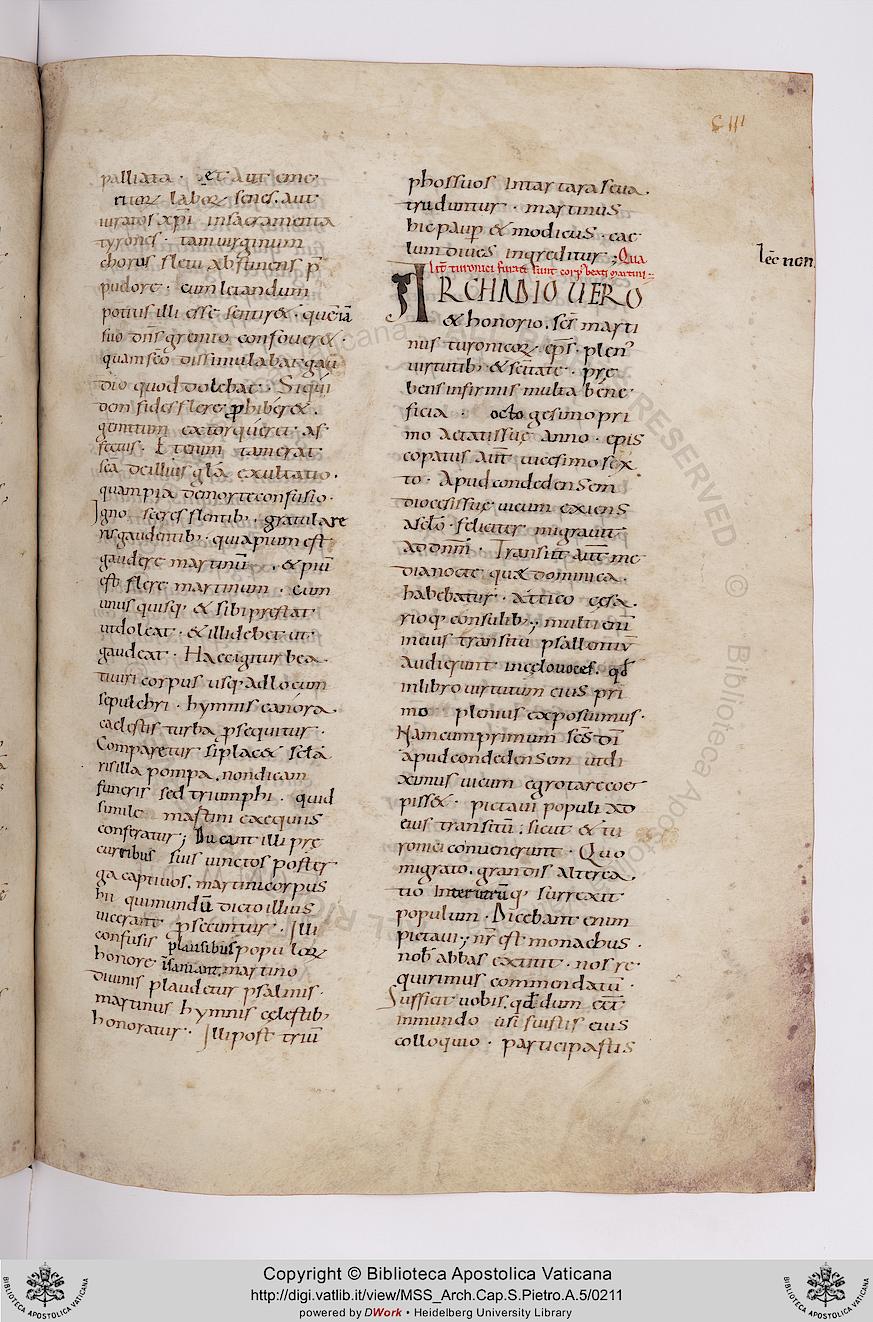 palliata · et aut eme
ritorꝝ laborꝝ senes. aut
iuratos xp̄i insacramenta
tyrones · tam uirginum
chorus fletu abstinens p̄
pudore · cum letandum
potius illi esse sentiret · que iā
suo dn̄s gremio confoueret ·
quam sc̄o dissimulabat gau
dio quod dolebat · Siqui
dem fides flere ꝓhiberet ·
gemitum extorqueret af
fectus · Etenim tam erat
sc̄a de illius gl̄a exultatio ·
quam pia demorte confusio ·
Igno sceres flentib; gratulare
ris gaudentib; quia pium est
gaudere martinū · & piū
est flere martinum · cum
unus quisq; & sibi prestat
ut doleat · & illi debet ut
gaudeat · Hæc igitur bea
tiuiri corpus usq; ad locum
sepulchri · hymnis canora
caelestis turba ꝓsequitur ·
Comparetur si placet secla
ris illa pompa. non dicam
funeris sed triumphi · quid
simile martini exequiis
conferatur; Ducant illi pre
curribus suis uinctos poster
ga captiuos. martini corpus
hii qui mundū ductoillius
uicerant ꝓsecuntur · Illi
confusis plausibus populorꝝ
honore insaniant. martino
diuinis plauditur psalmis ·
martinus hymnis cęlestib;
honoratur · Illi post triū
phos suos In tartara seua
truduntur · martinus
hic paup & modicus · cae
lum diues ingreditur ; Qua
lit̄ turonici furati sunt corp' beati martini
ARCHADIO UERO
& honorio. sc̄s marti
nus turonicorꝝ · ep̄s · plen'
uirtutib; & sc̄itate · pre
bens infirmis multa bene
ficia · octogesimo pri
mo aetatis sue anno · epis
copatus aut̄ uicesimo sex
to · Apud condedensem
diocesis sue uicum exiens
a sc̄lo · feliciter migrauit
ad dn̄m · Transiit aut̄ me
dia nocte quae dominica
habebatur · attico cesa
rioq; consulib; multi enī
in eius transitū psallentiū
audierunt in celo uoces. qd̄
in libro uirtutum eius pri
mo plenius exposuimus ·
Nam cum primum sc̄s dī
apud condedensem ut di
ximus uicum egrotare coe
pisset · pictaui populi ad
eius transitū · sicut & tu
ronici conuenerunt · Quo
migrato. grandis alterca
tio Inter utrūq; surrexit
populum · Dicebant enim
pictaui; nr̄ est monachus ·
nob̄ abbas extitit · nos re
quirimus commendatū ·
Sufficit uobis. qd̄ dum eēt
in mundo usi fuistis eius
colloquio · participastis
C III
lec̄ non
Copyright © Biblioteca Apostolica Vaticana
http://digi.vatlib.it/view/MSS_Arch.Cap.S.Pietro.A.5/0211
powered by DWork • Heidelberg University Library